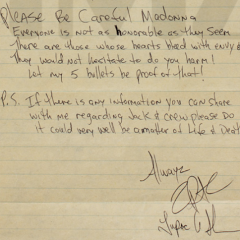 Please Be Careful Madonna
Everyone is not as honorable as they seem
There are those whose hearts bleed with envy &
They would not hesitate to do you harm!
Let my 5 bullets be proof of that!
P.S. If there is any information you can share
with me regarding Jack & crew please Do
it could very well be a matter of Life & Death
Always